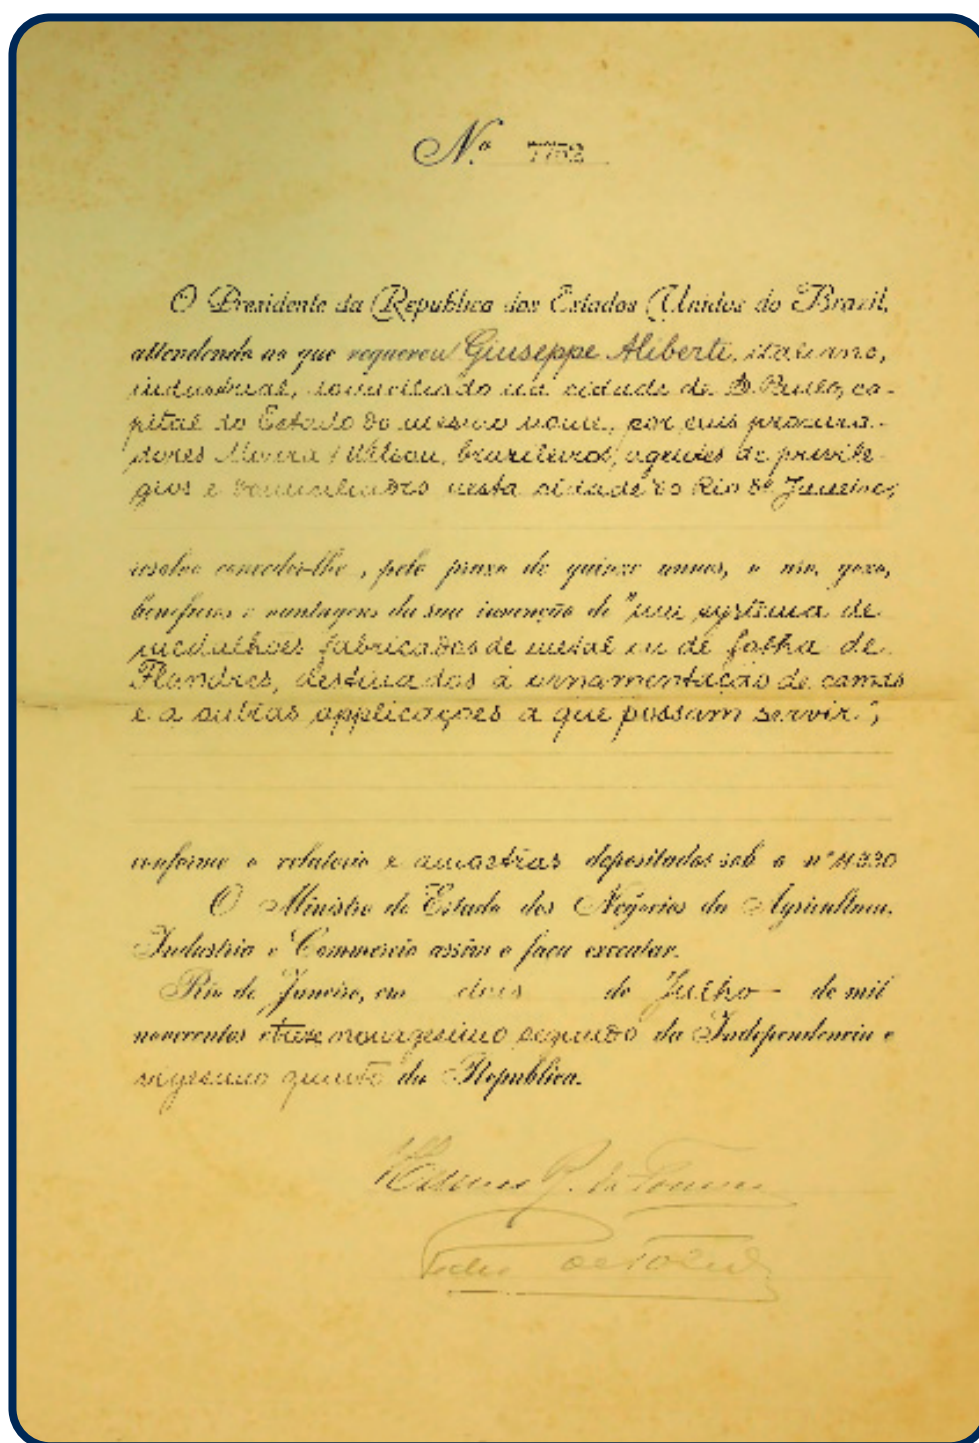 Nº 7752
O Presidente da Republica dos Estados Unidos do Brazil,
attendendo ao que requereu Giuseppe Aliberti, italiano,
industrial, domiciliado na cidade de S. Paulo, ca-
pital do Estado do mesmo nome, por seus procura-
dores Moura & Wilson, brazileiros, agentes de privile-
gios e domiciliados nesta cidade do Rio de Janeiro;
resolve conceder-lhe, pelo prazo de quinze annos, o uso, gozo,
beneficios e vantagens da sua invenção de "um systema de
medalhões fabricados de metal ou de folha de
Flandres, destinados á ornamentação de camas
e a outras applicações a que possam servir";
conforme o relatorio e amostras depositados sob o nº
O Ministro de Estado dos Negocios da Agricultura,
Industria e Commercio assim o faça executar.
Rio de Janeiro, em dois de Julho de mil
novecentos e treze nonagesimo segundo da Independencia e
vigesimo quinto da Republica.
Hermes R. da Fonseca
Pedro de Toledo